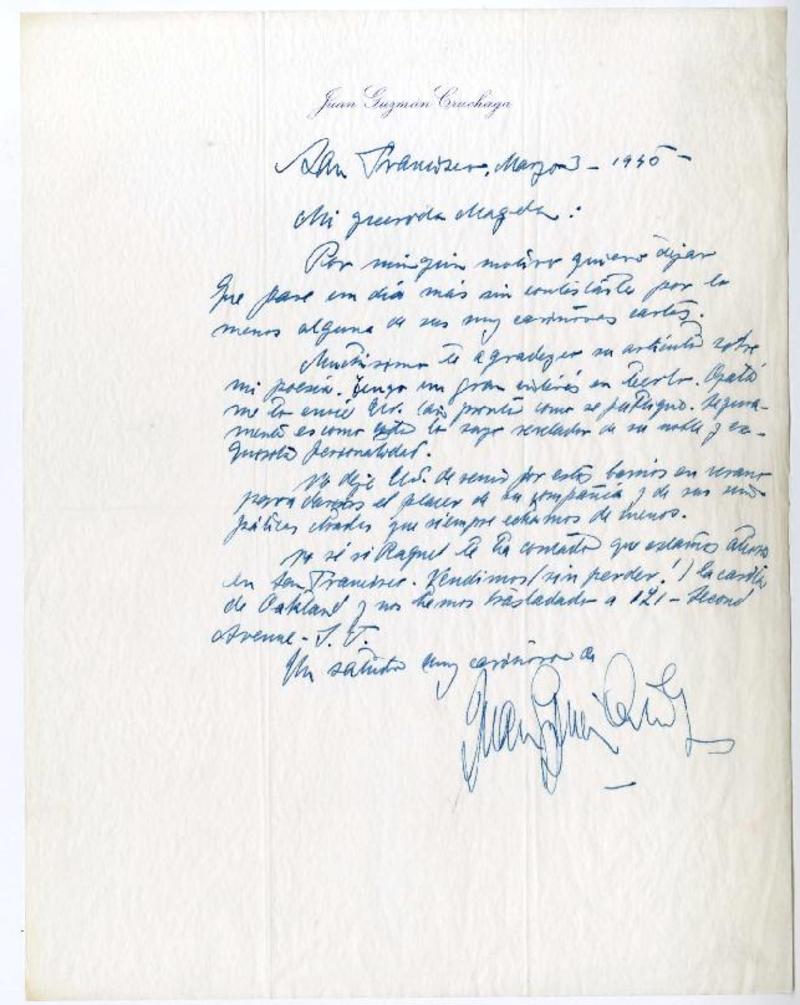 Juan Guzmán Cruchaga
San Francisco, Marzo 3 - 1945 -
Mi querida Magda:
Por ningún motivo quiero dejar
que pase un día más sin contestarle por lo
menos alguna de sus muy cariñosas cartas.
Muchísimo le agradezco su artículo sobre
mi poesía. Tengo un gran interés en leerlo. Ojalá
me lo envíe Ud. tan pronto como se publique. Segura-
mente es como todo lo suyo revelador de su noble y ex-
quisita personalidad.
No deje Ud. de venir por estos barrios en verano
para darnos el placer de su compañía y de sus sim-
páticas charlas que siempre echamos de menos.
No sé si Raquel le ha contado que estamos ahora
en San Francisco. Vendimos (sin perder!) la casita
de Oakland y nos hemos trasladado a 121 - Second
Avenue - S. F.
Un saludo muy cariñoso de
Juan Guzmán Cruchaga